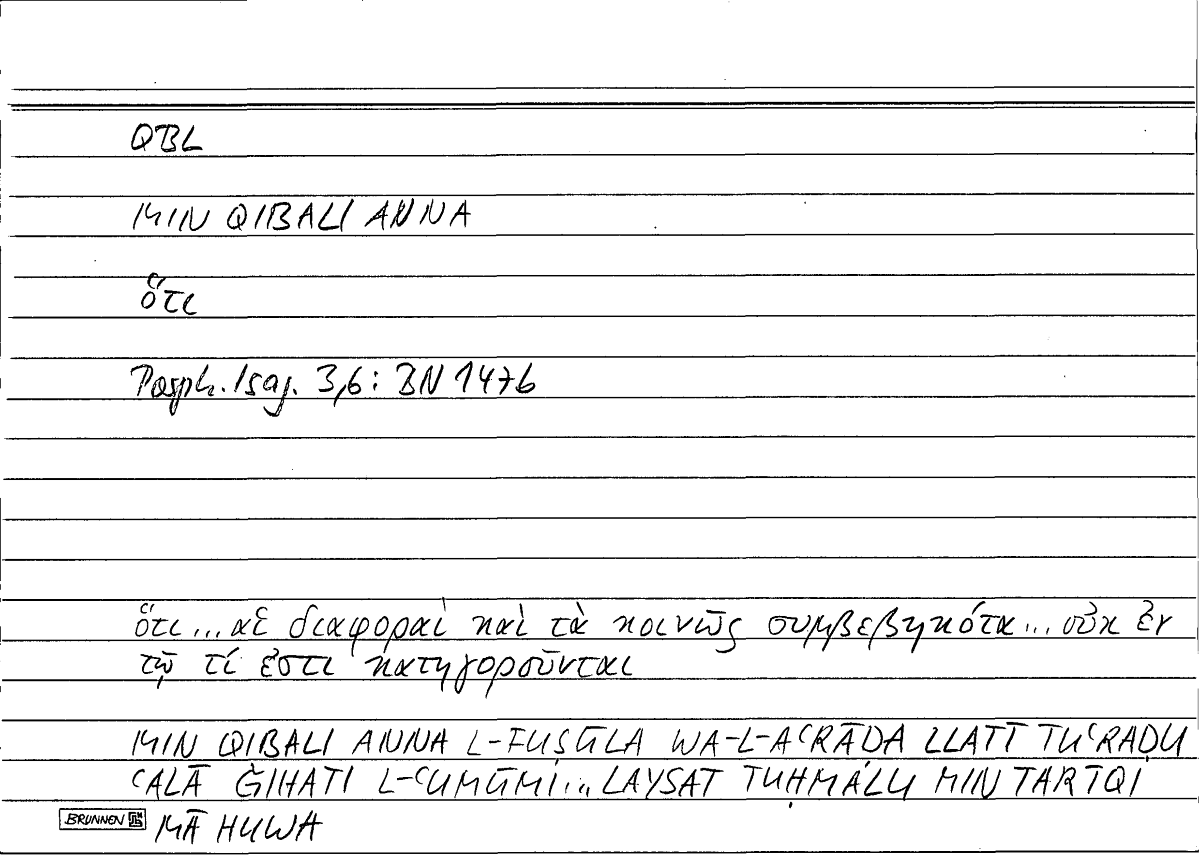 QBL
MIN QIBALI ANNA
ὅτι
Porph. Isag. 3,6: BN 147b
ὅτι ... αἱ διαφοραὶ καὶ τὰ κοινῶς συμβεβηκότα ... οὐκ ἐν
τῷ τί ἐστι κατηγοροῦνται
MIN QIBALI ANNA L-FUṢŪLA WA-L-AʿRĀḌA LLATĪ TUʿRAḌU
ʿALĀ ǦIHATI L-ʿUMŪMI ... LAYSAT TUḤMALU MIN ṬARĪQI
BRUNNEN MĀ HUWA